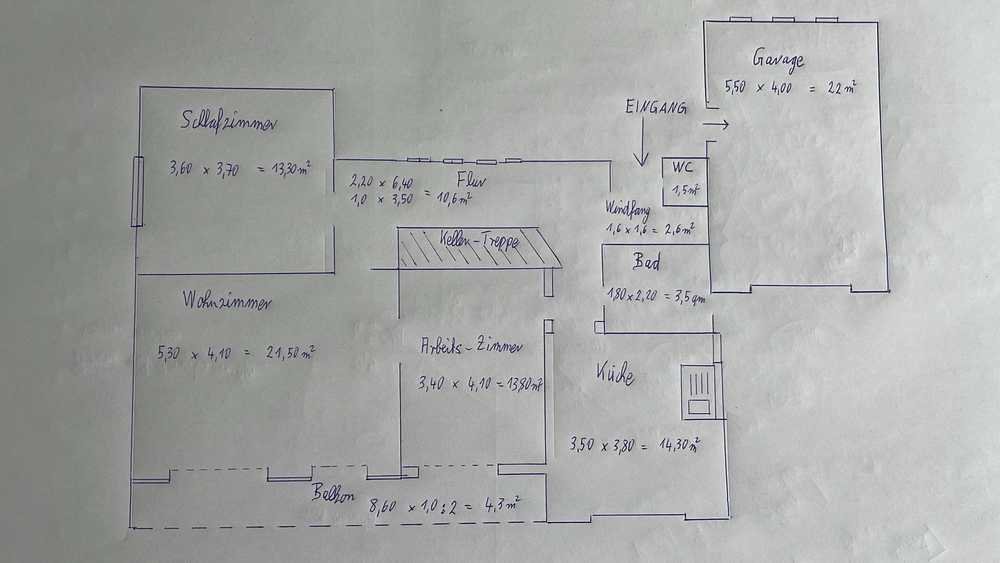 Garage
5,50 x 4,00 = 22 m²
EINGANG
Schlafzimmer
3,60 x 3,70 = 13,30 m²
WC
1,5 m²
Flur
2,20 x 6,40
1,0 x 3,50 = 10,6 m²
Windfang
1,6 x 1,6 = 2,6 m²
Keller-Treppe
Bad
1,80 x 2,20 = 3,5 qm
Wohnzimmer
5,30 x 4,10 = 21,50 m²
Arbeits-Zimmer
3,40 x 4,10 = 13,80 m²
Küche
3,50 x 3,80 = 14,30 m²
Balkon
8,60 x 1,0 : 2 = 4,3 m²